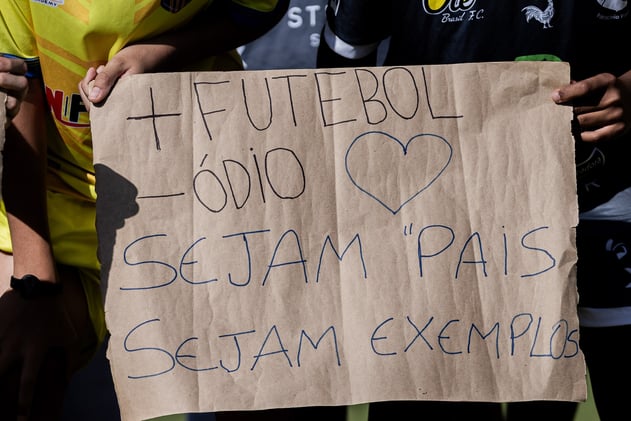 + FUTEBOL
- ÓDIO
SEJAM "PAIS
SEJAM EXEMPLOS
Brasil F.C.